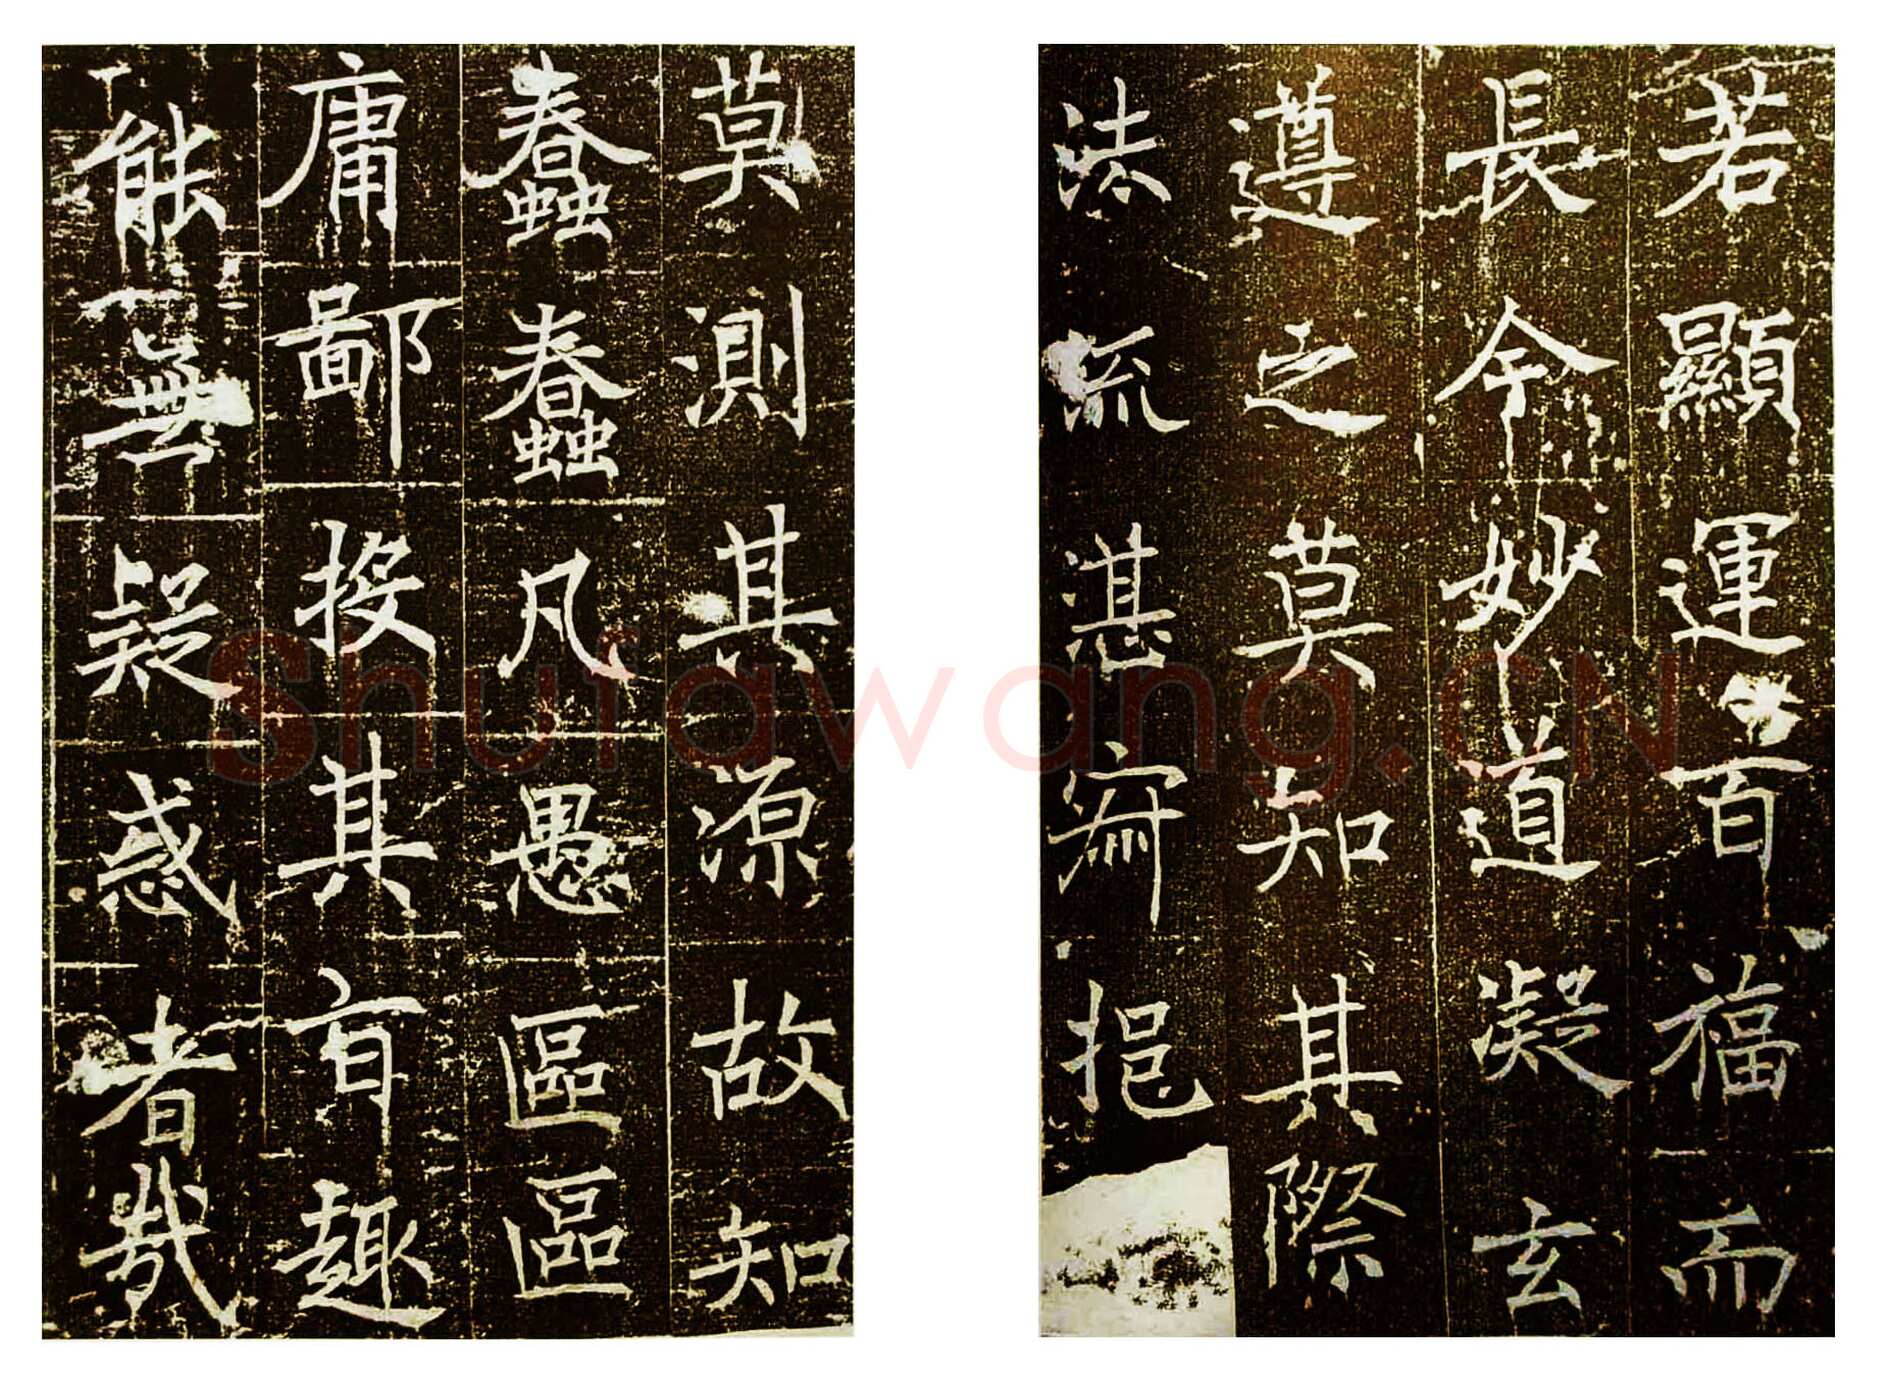 若顯運百福而
長今妙道凝玄
遵之莫知其際
法流湛寂挹
莫測其源故知
蠢蠢凡愚區區
庸鄙投其旨趣
能無疑惑者哉
Shufawang.CN